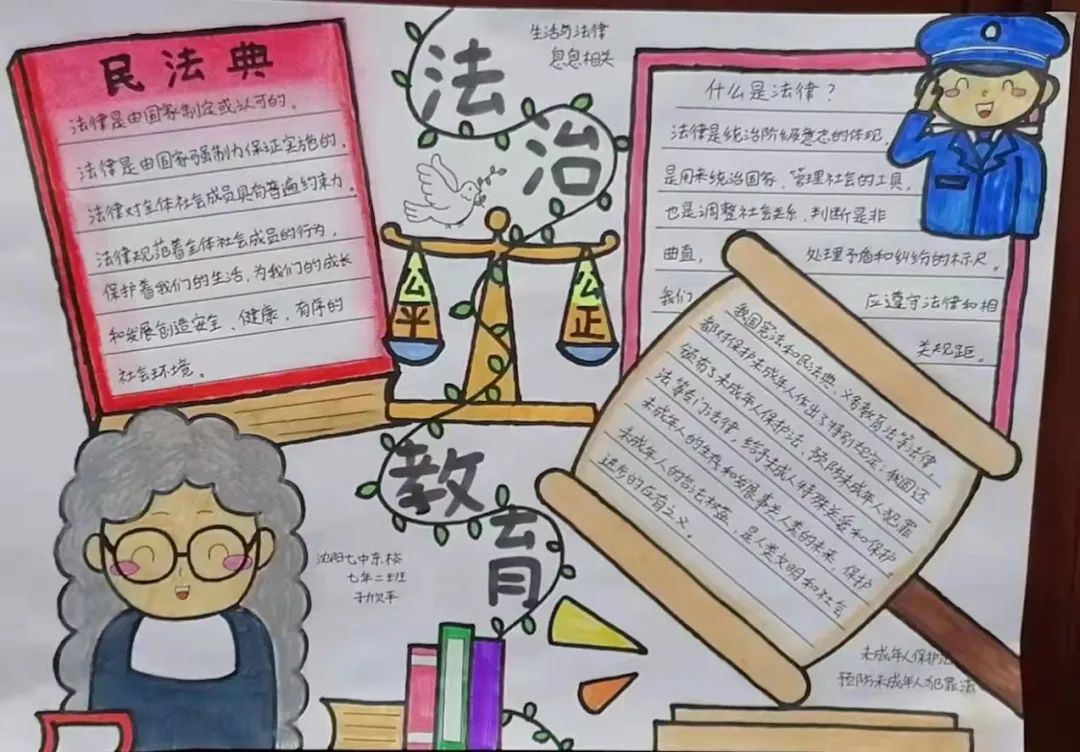 民法典
法律是由国家制定或认可的。
法律是由国家强制力保证实施的。
法律对全体社会成员具有普遍约束力。
法律规范着全体社会成员的行为，
保护着我们的生活，为我们的成长
和发展创造安全、健康、有序的
社会环境。
法
治
教
育
生活与法律
息息相关
公平
公正
什么是法律？
法律是统治阶级意志的体现，
是用来统治国家、管理社会的工具，
也是调整社会关系、判断是非
曲直， 处理矛盾和纠纷的标尺。
我们 应遵守法律和相
关规距。
我国宪法和民法典、义务教育法等法律，
都对保护未成年人作出了特别规定。我国还
颁布了未成年人保护法、预防未成年人犯罪
法等专门法律，给予未成人特殊关爱和保护。
未成年人的生存和发展事关人类的未来，保护
未成年人的合法权益，是人类文明和社会
进步的应有之义。
沈阳七中东校
七年二班
于欣平
未成年人保护法
预防未成年人犯罪法